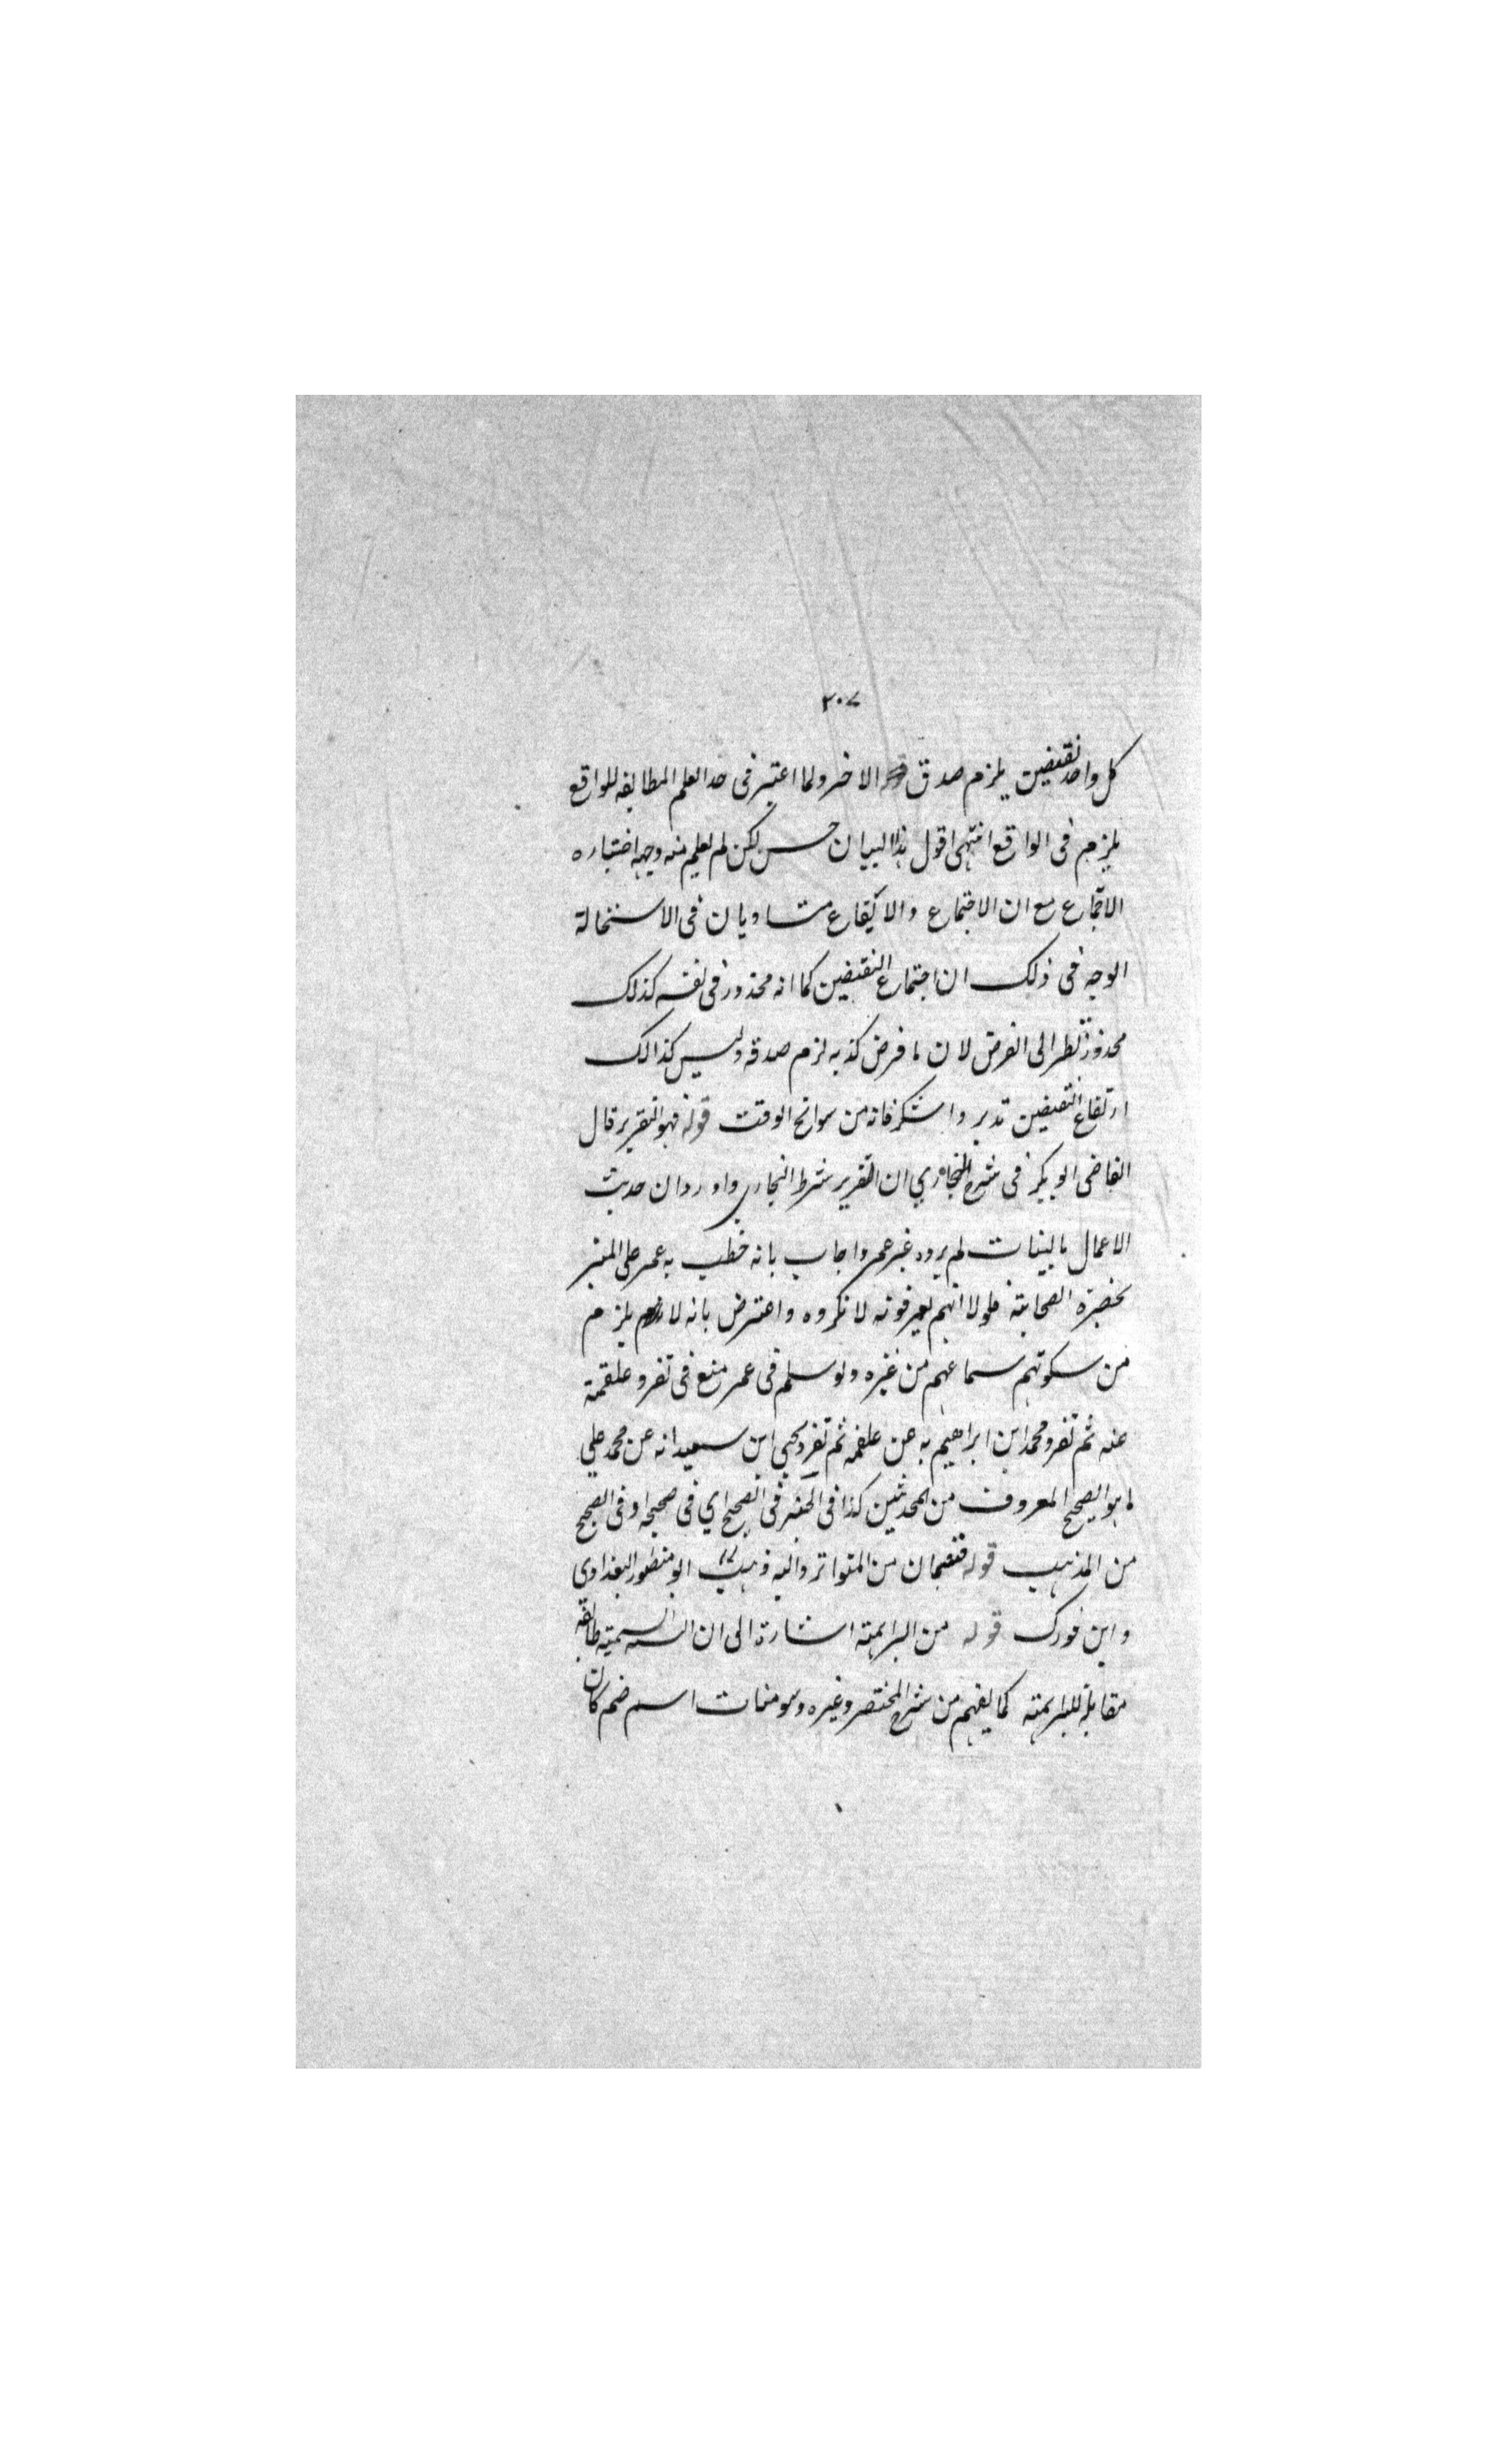 ٢٠٧
كل واحد نقيضين يلزم صدق الاخر ولما اعتبر فى حد العلم المطابقه للواقع
يلزم فى الواقع انتهى اقول هذا البيان حسن لكن لم يعلم منه وجه اختياره
الاجتماع مع ان الاجتماع والارتفاع متساويان فى الاستحالة
الوجه فى ذلك ان اجتماع النقيضين كما انه محذور فى نفسه كذلك
محذور نظر الى الفرض لان ما فرض كذبه لزم صدقه وليس كذالك
ارتفاع النقيضين تدبر واشكر فانه من سوانح الوقت قوله فهو التقرير قال
القاضى ابو بكر فى شرح البخاري ان التقرير شرط البخاري واورد ان حديث
الاعمال بالنيات لم يروه غير عمر واجاب بانه خطب به عمر على المنبر
بحضرة الصحابة فلولا انهم يعرفونه لانكروه واعترض بانه لا يلزم
من سكوتهم سماعهم من غيره ولو سلم فى عمر منع فى تفرد علقمة
عنه ثم تفرد محمد ابن ابراهيم به عن علقمه ثم تفرد يحيى ابن سعيد انه عن محمد علي
ما هو الصحيح المعروف من المحدثين كذا فى فى الصحيح اي فى صحيحه او فى الصحيح
من المذهب قوله فقسمان من المتواتر واليه ذهب ابو منصور البغدادي
وابن فورك قوله من البراهمة اشارة الى ان السمنية طائفة
مقابلة للبراهمة كما يفهم من شرح المختصر وغيره وسومنات اسم صنم كان